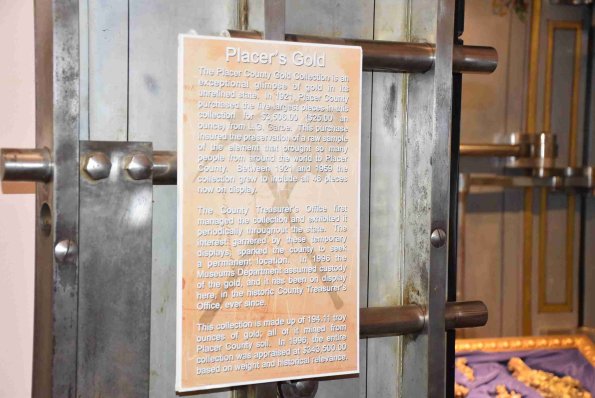 Placer's Gold
The Placer County Gold Collection is an
exceptional glimpse of gold in its
unrefined state. In 1921, Placer County
purchased the five largest pieces in this
collection for $2,506.00 ($25.00 an
ounce) from L.S. This purchase
insured the preservation of a raw sample
of the element that brought so many
people from around the world to Placer
County. Between 1921 and 1959 the
collection grew to include all 48 pieces
now on display.
The County Treasurer's Office first
managed the collection and exhibited it
periodically throughout the state. The
interest garnered by these temporary
displays, sparked the county to seek
a permanent location. In 1996 the
Museums Department assumed custody
of the gold, and it has been on display
here, in the historic County Treasurer's
Office, ever since.
This collection is made up of 194.11 troy
ounces of gold; all of it mined from
Placer County soil. In 1996, the entire
collection was appraised at $343,500.00
based on weight and historical relevance.